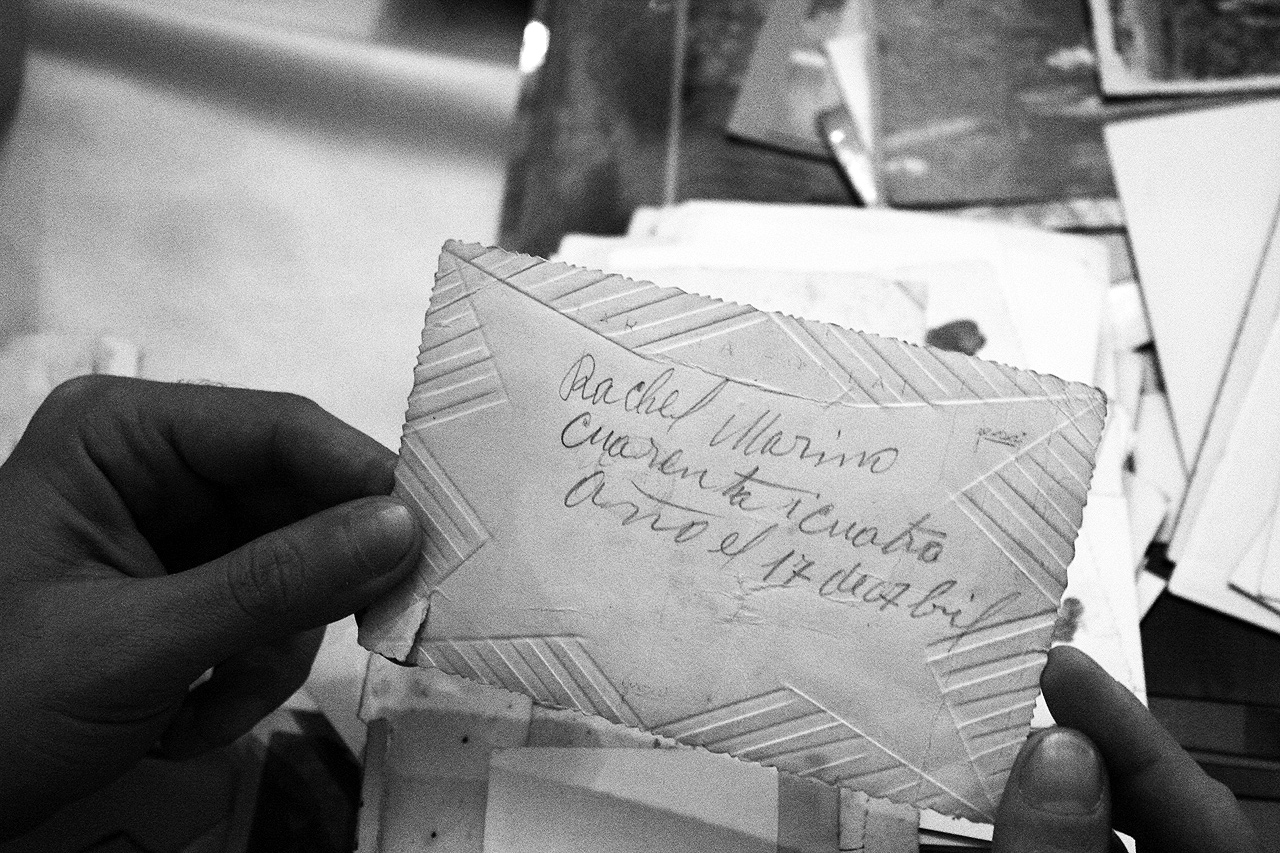 Rachel Marino
cuarenta i cuatro
año el 17 de abril